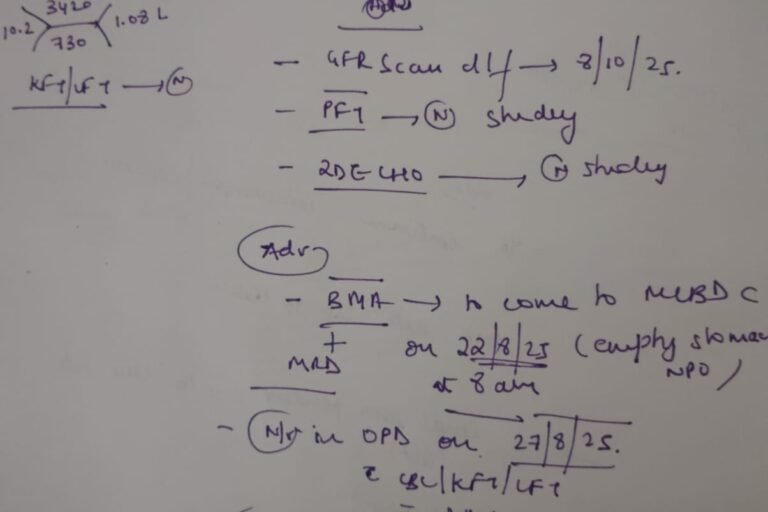 3420
10.2 1.08 L
730
KFT/LFT → (N)
Adv
- GFR Scan d/f → 8/10/25.
- PFT → (N) study
- 2DECHO → (N) study
Adv
- BMA → to come to MCBDC
+ on 22/8/25 (empty stomac
MRD NPO)
at 8 am
- N/v in OPD on 27/8/25.
c CBC/KFT/LFT